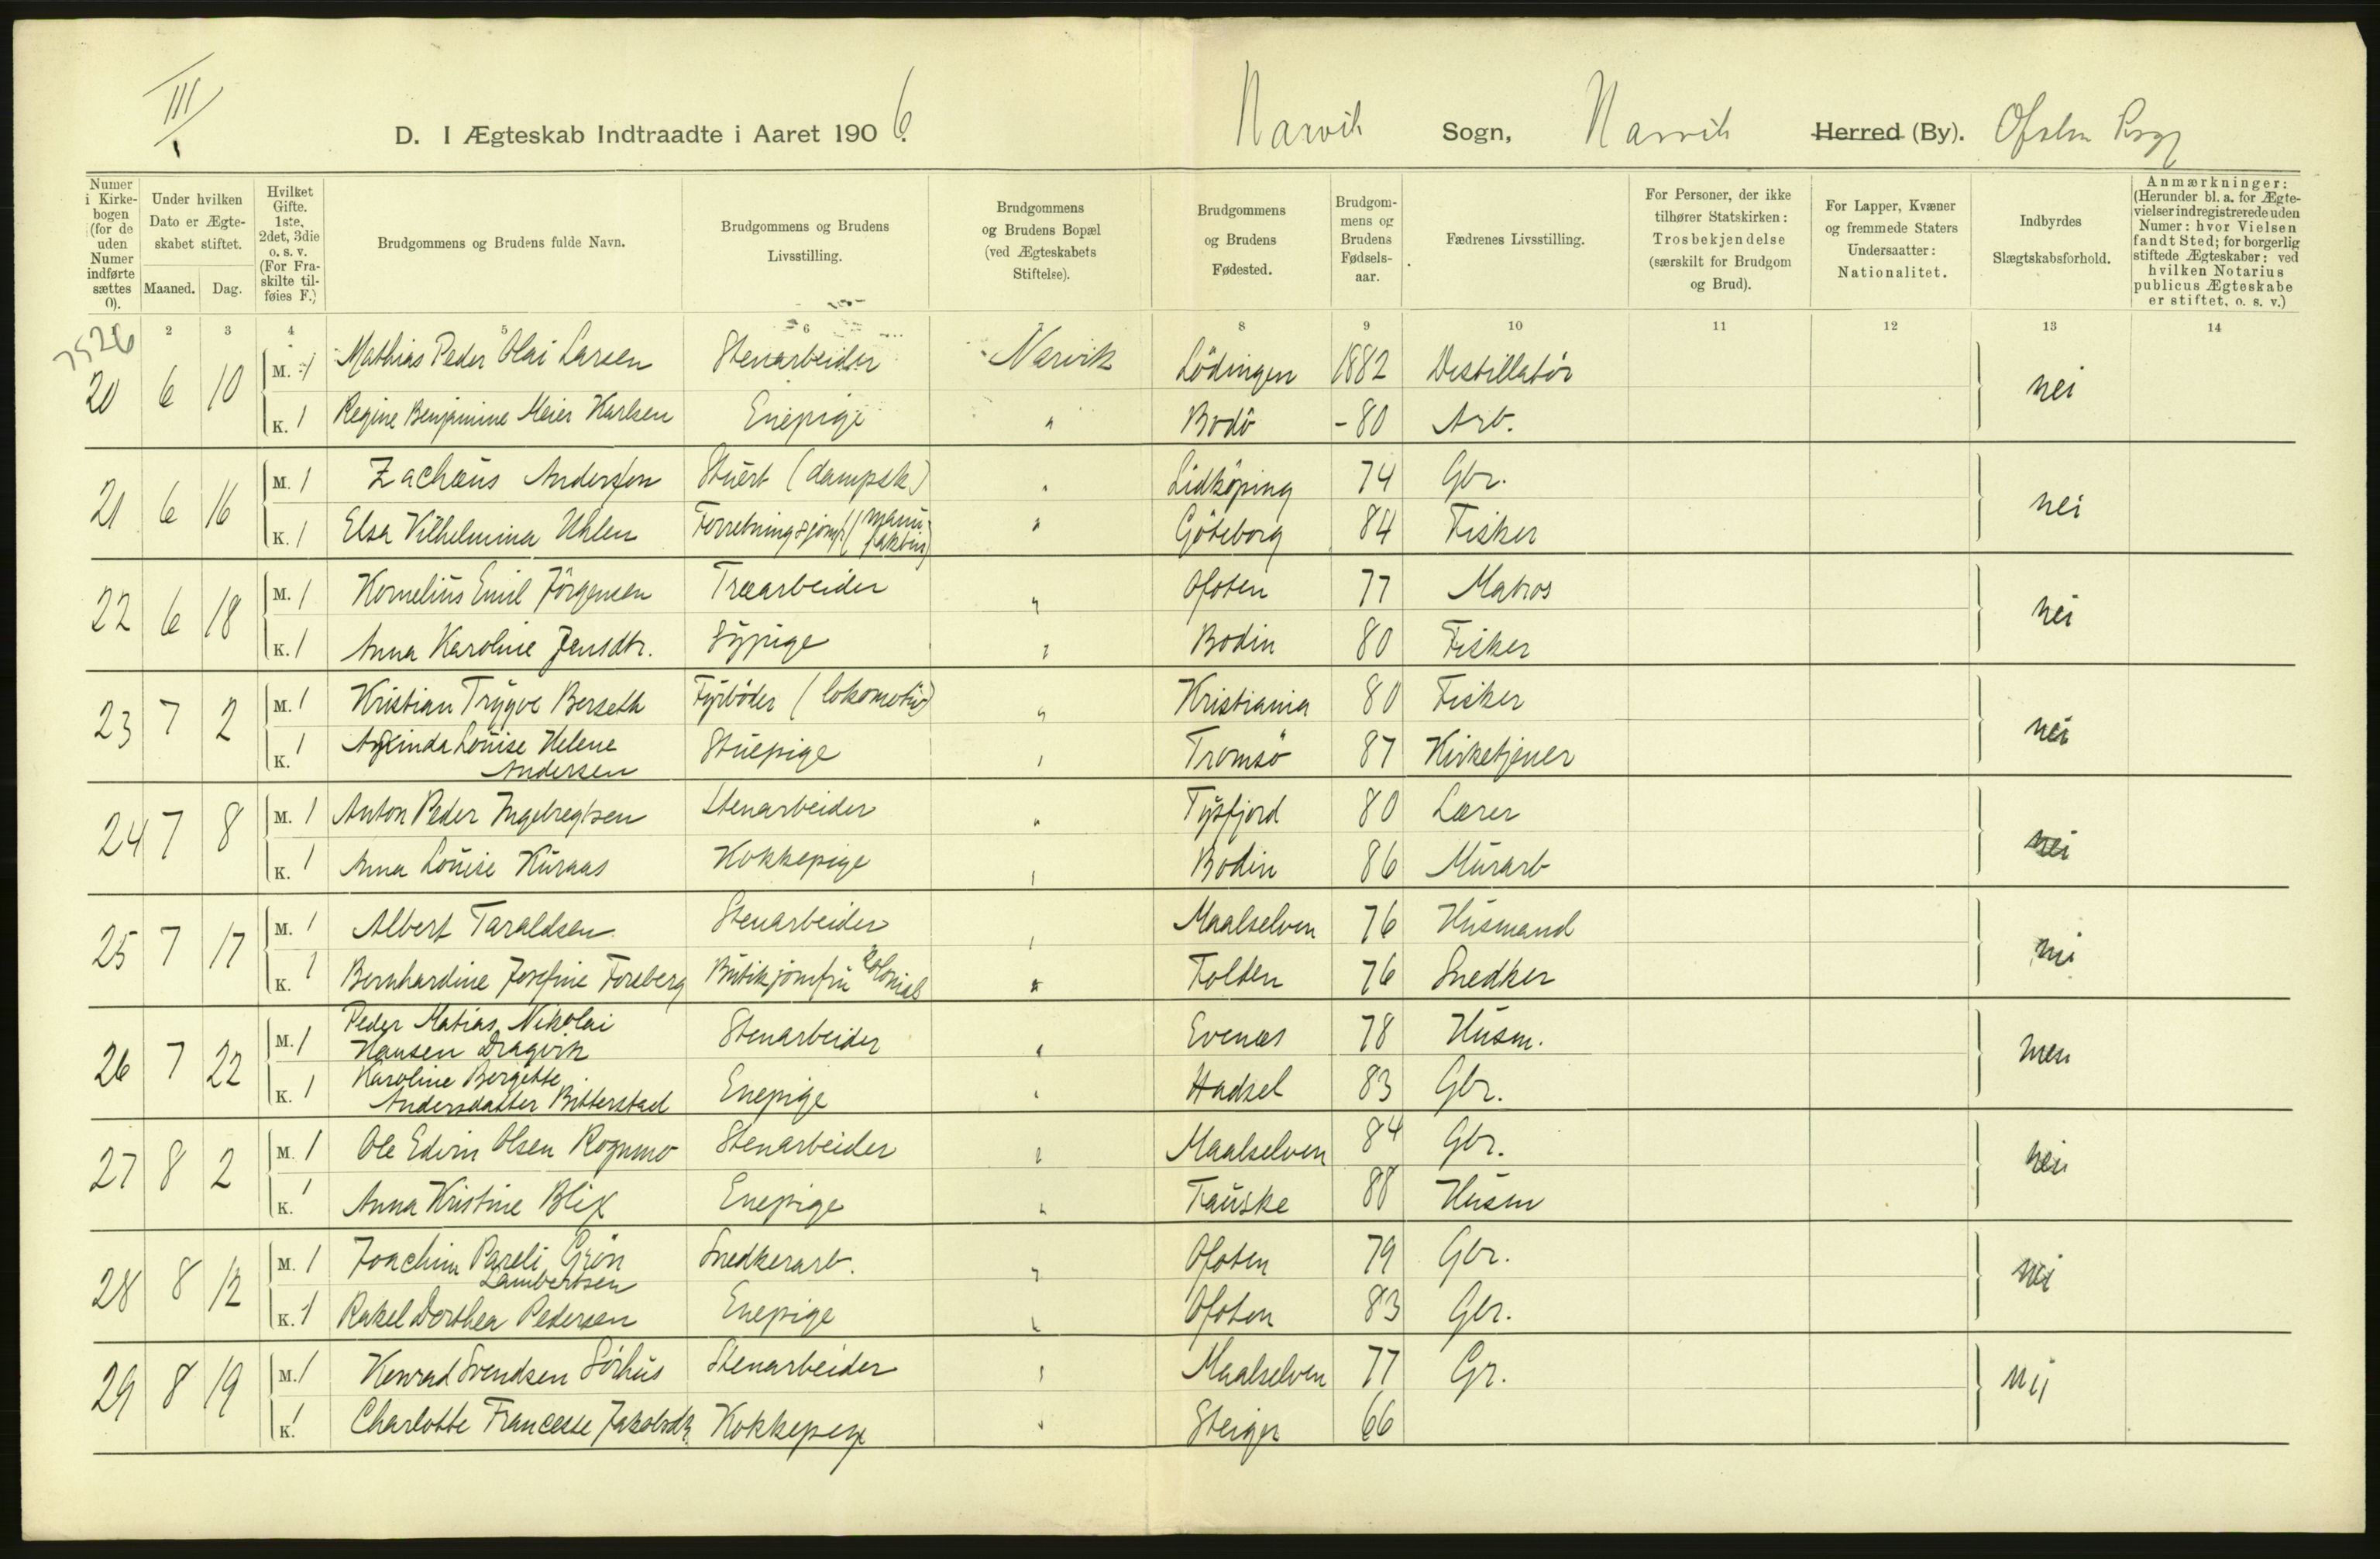 III
D. I Ægteskab Indtraadte i Aaret 1906.
Narvik Sogn, Narvik Herred (By). Ofoten
Numer i Kirkebogen (for de uden Numer indførte sættes 0).
Under hvilken Dato er Ægteskabet stiftet. Maaned. Dag.
Hvilket Gifte. 1ste, 2det, 3die o. s. v. (For Fraskilte tilføies F.)
Brudgommens og Brudens fulde Navn.
Brudgommens og Brudens Livsstilling.
Brudgommens og Brudens Bopæl (ved Ægteskabets Stiftelse).
Brudgommens og Brudens Fødested.
Brudgommens og Brudens Fødselsaar.
Fædrenes Livsstilling.
For Personer, der ikke tilhører Statskirken: Trosbekjendelse (særskilt for Brudgom og Brud).
For Lapper, Kvæner og fremmede Staters Undersaatter: Nationalitet.
Indbyrdes Slægtskabsforhold.
Anmærkninger: (Herunder bl. a. for Ægtevielser indregistrerede uden Numer: hvor Vielsen fandt Sted; for borgerlig stiftede Ægteskaber: ved hvilken Notarius publicus Ægteskabe er stiftet, o. s. v.)
2 3 4 5 6 7 8 9 10 11 12 13 14
7526
20 6 10 M. 1 Mathias Peder Olai Larsen Stenarbeider Narvik Lödingen 1882 Destillatör nei
K. 1 Regine Benjamine Meier Karlsen Enepige " Bodö -80 Arb.
21 6 16 M. 1 Zachæus Andersson Stuert (dampsk) " Lidköping 74 Gbr. nei
K. 1 Elsa Vilhelmina Uhlen Forretningsjomf (manufaktur) " Göteborg 84 Fisker
22 6 18 M. 1 Kornelius Emil Jörgensen Træarbeider " Ofoten 77 Matros nei
K. 1 Anna Karoline Jensdtr. Sypige " Bodin 80 Fisker
23 7 2 M. 1 Kristian Trygve Berseth Fyrböder (lokomotiv) " Kristiania 80 Fisker nei
K. 1 Louise Helene Andersen Stuepige " Tromsö 87 Kirketjener
24 7 8 M. 1 Anton Peder Ingebregtsen Stenarbeider " Tysfjord 80 Lærer nei
K. 1 Anna Louise Kuraas Kokkepige " Bodin 86 Murarb
25 7 17 M. 1 Albert Taraldsen Stenarbeider " Maalselven 76 Husmand nei
K. 1 Bernhardine Josefine Forsberg Butikjomfru Kolonial " Folden 76 Snedker
26 7 22 M. 1 Peder Matias Nikolai Hansen Dragvik Stenarbeider " Evenæs 78 Husm.
K. 1 Karoline Bergitte Andersdatter Bitterstad Enepige " Hadsel 83 Gbr.
27 8 2 M. 1 Ole Edvin Olsen Rognmo Stenarbeider " Maalselven 84 Gbr. nei
K. 1 Anna Kristine Blix Enepige " Fauske 88 Husm
28 8 12 M. 1 Joachim Pareli Grön Lambertsen Snedkerarb. " Ofoten 79 Gbr. nei
K. 1 Rakel Dorthea Pedersen Enepige " Ofoten 83 Gbr.
29 8 19 M. 1 Konrad Svendsen Sörhus Stenarbeider " Maalselven 77 Gr. nei
K. 1 Charlotte Jakobsdtr. Kokkepige " Steigen 66